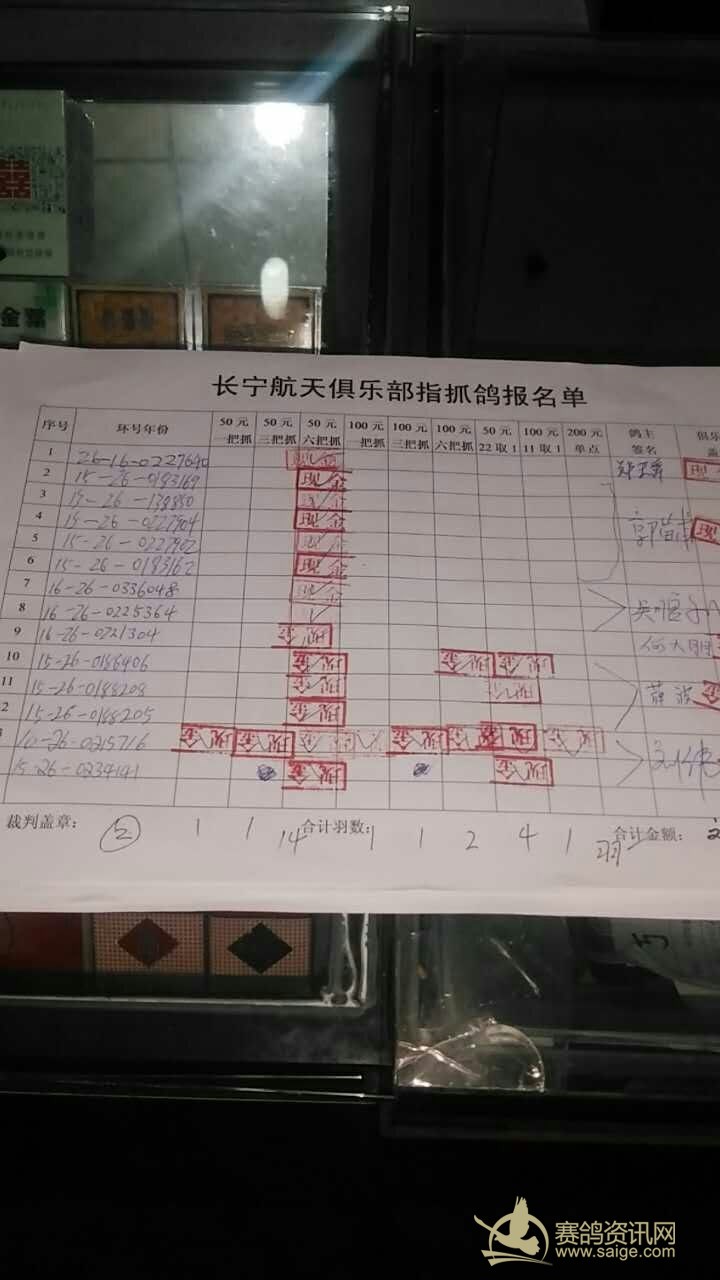 囍
金
长宁航天俱乐部指抓鸽报名单
序号 环号年份 50元一把抓 50元三把抓 50元六把抓 100元一把抓 100元三把抓 100元六把抓 50元22取1 100元11取1 200元单点 鸽主签名 俱乐
1 26-16-0227640 现金 现
2 15-26-0183169 现金
3 15-26-139880 现金
4 15-26-0227904 现金 现
5 15-26-0227902 现金
6 15-26-0183162 现金
7 16-26-0336048 现金
8 16-26-0225364
9 16-26-0221304 现金
10 15-26-0188406 现金 现金 现金
11 15-26-0188208 现金 现金 薛波
2 15-26-0188205 现金
10-26-0215716 现金 现金 现金 现金 现金 现金 现金 现金
15-26-0234141 现金 现金
裁判盖章： ② 1 1 14 合计羽数： 1 1 2 4 1 羽 合计金额：
赛鸽资讯网
www.saige.com